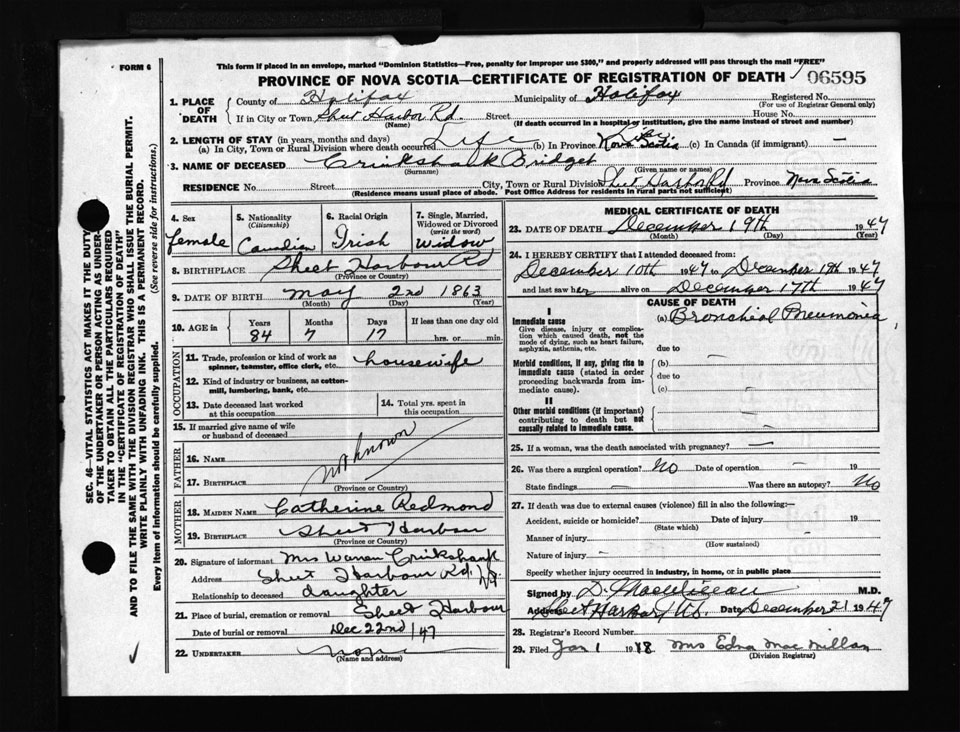 This form if placed in an envelope, marked "Dominion Statistics—Free, penalty for improper use $300," and properly addressed will pass through the mail "FREE"
FORM 6
PROVINCE OF NOVA SCOTIA—CERTIFICATE OF REGISTRATION OF DEATH
06595
1. PLACE OF DEATH
County of Halifax Municipality of Halifax Registered No.
(For use of Registrar General only)
If in City or Town Sheet Harbor Rd. Street House No.
(Name) (If death occurred in a hospital or institution, give the name instead of street and number)
2. LENGTH OF STAY (in years, months and days)
(a) In City, Town or Rural Division where death occurred Life (b) In Province Life Nova Scotia (c) In Canada (if immigrant) —
3. NAME OF DECEASED Crinkshank Bridget
(Surname) (Given name or names)
RESIDENCE No. Street City, Town or Rural Division Sheet Harbor Rd Province Nova Scotia
(Residence means usual place of abode. Post Office Address for residents in rural parts not sufficient)
4. Sex
Female
5. Nationality
(Citizenship)
Canadian
6. Racial Origin
Irish
7. Single, Married, Widowed or Divorced
(write the word)
widow
8. BIRTHPLACE Sheet Harbour Rd
(Province or Country)
9. DATE OF BIRTH May 2nd 1863
(Month) (Day) (Year)
10. AGE in
Years Months Days If less than one day old
84 7 17 hrs. or min.
OCCUPATION
11. Trade, profession or kind of work as housewife
spinner, teamster, office clerk, etc.
12. Kind of industry or business, as cotton-
mill, lumbering, bank, etc.
13. Date deceased last worked
at this occupation
14. Total yrs. spent in
this occupation
15. If married give name of wife
or husband of deceased
FATHER
16. NAME
not known
17. BIRTHPLACE
(Province or Country)
MOTHER
18. MAIDEN NAME Catherine Redmond
19. BIRTHPLACE Sheet Harbour
(Province or Country)
20. Signature of informant Mrs Warren Crinkshank
Address Sheet Harbour Rd. NS
Relationship to deceased daughter
21. Place of burial, cremation or removal Sheet Harbour
Date of burial or removal Dec 22nd/47
22. UNDERTAKER none
(Name and address)
MEDICAL CERTIFICATE OF DEATH
23. DATE OF DEATH December 19th 1947
(Month) (Day) (Year)
24. I HEREBY CERTIFY that I attended deceased from:
December 10th 1947 to December 19th 1947
and last saw her alive on December 17th 1947
CAUSE OF DEATH
I
Immediate cause
(a) Bronchial Pneumonia
Give disease, injury or complica-
tion which caused death, not the
mode of dying, such as heart failure,
asphyxia, asthenia, etc.
due to —
Morbid conditions, if any, giving rise to
immediate cause (stated in order
proceeding backwards from im-
mediate cause).
(b)
due to —
(c)
II
Other morbid conditions (if important)
contributing to death but not
causally related to immediate cause.
25. If a woman, was the death associated with pregnancy? —
26. Was there a surgical operation? No Date of operation — 19
State findings — Was there an autopsy? No
27. If death was due to external causes (violence) fill in also the following:—
Accident, suicide or homicide? Date of injury 19
(State which)
Manner of injury
(How sustained)
Nature of injury —
Specify whether injury occurred in industry, in home, or in public place
Signed by D. M.D.
Address Sheet Harbor, N.S. Date December 21 1947
28. Registrar's Record Number
29. Filed Jan 1 1948 Mrs Edna MacMillan
(Division Registrar)
SEC. 46—VITAL STATISTICS ACT MAKES IT THE DUTY
OF THE UNDERTAKER OR PERSON ACTING AS UNDER-
TAKER TO OBTAIN ALL THE PARTICULARS REQUIRED
IN THE "CERTIFICATE OF REGISTRATION OF DEATH"
AND TO FILE THE SAME WITH THE DIVISION REGISTRAR WHO SHALL ISSUE THE BURIAL PERMIT.
WRITE PLAINLY WITH UNFADING INK. THIS IS A PERMANENT RECORD.
Every item of Information should be carefully supplied. (See reverse side for instructions.)